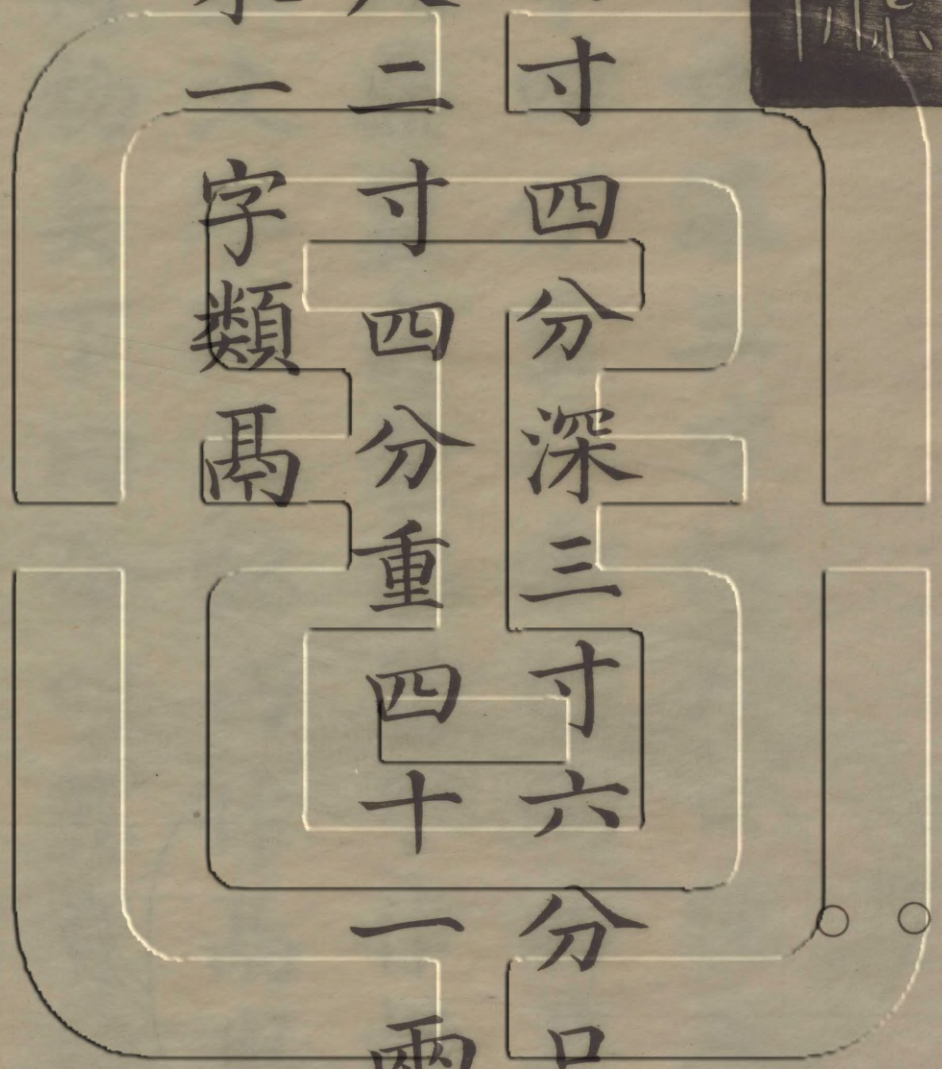 寸四分深三寸六分口
二寸四分重四十一兩
一字類鬲